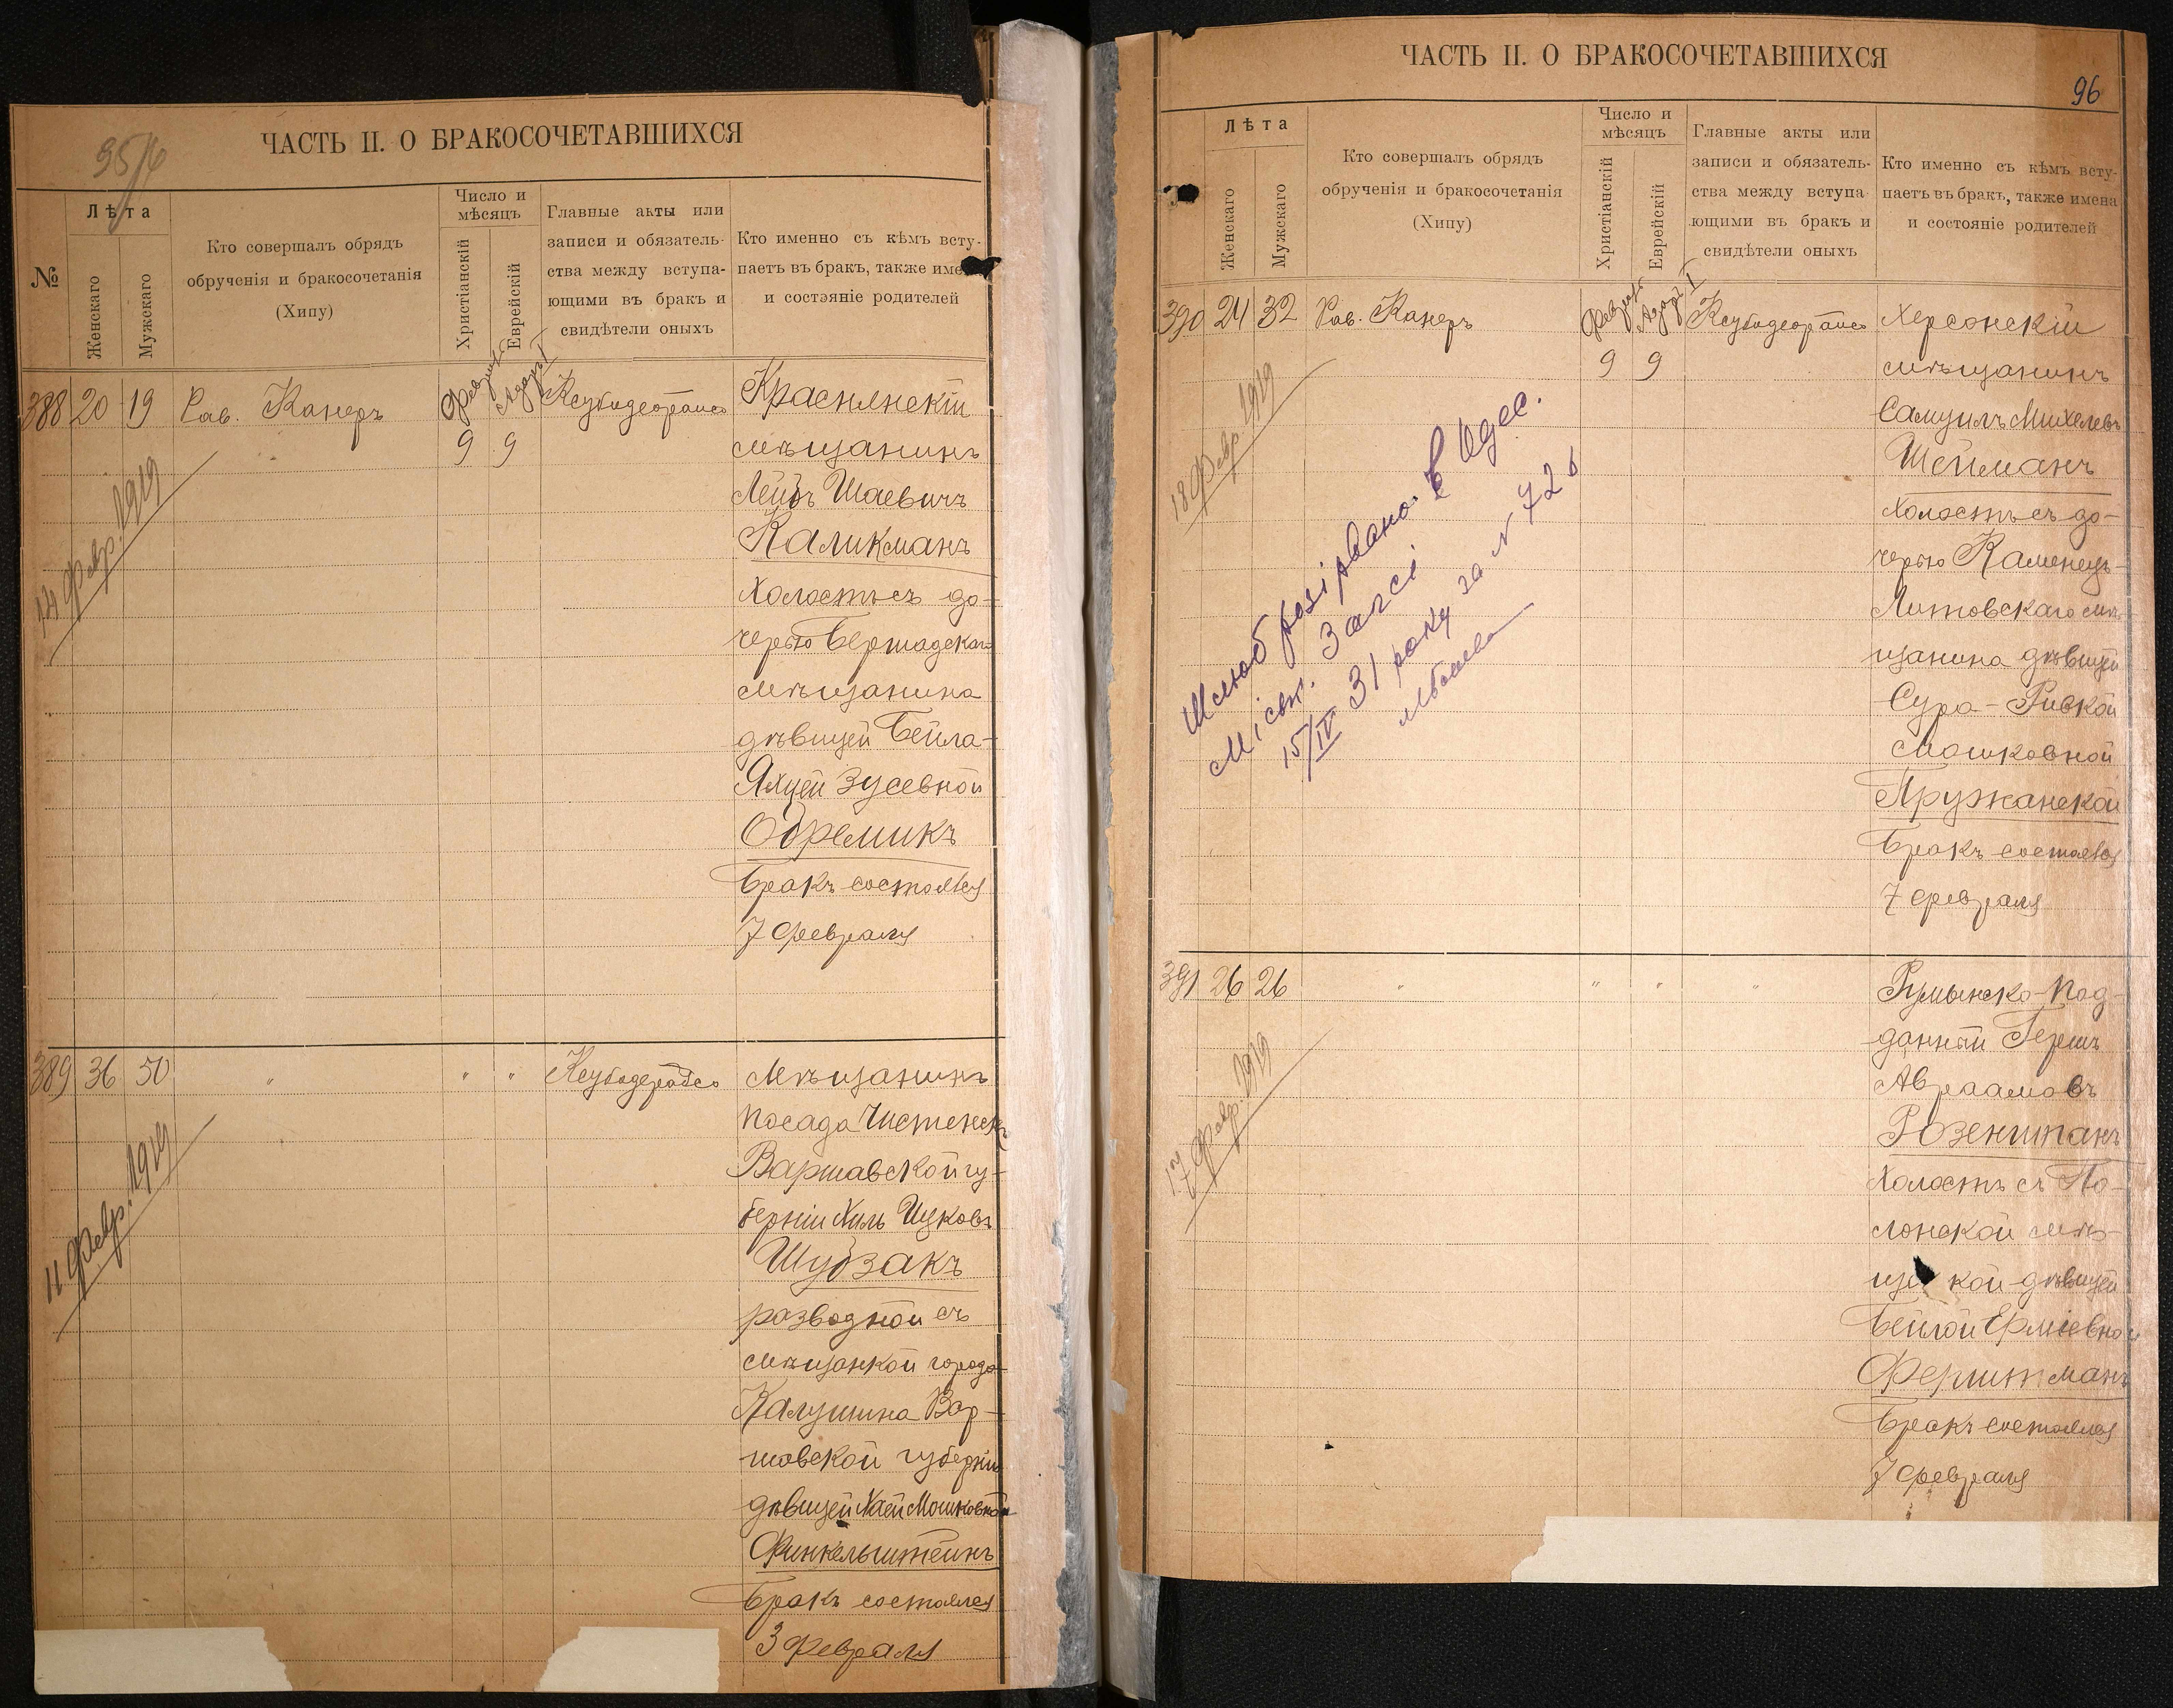 95/6
ЧАСТЬ II. О БРАКОСОЧЕТАВШИХСЯ
№
Лѣта
Женскаго
Мужскаго
Кто совершалъ обрядъ
обрученія и бракосочетанія
(Хипу)
Число и
мѣсяцъ
Христіанскій
Еврейскій
Главные акты или
записи и обязатель-
ства между вступа-
ющими въ бракъ и
свидѣтели оныхъ
Кто именно съ кѣмъ всту-
паетъ въ бракъ, также име
и состояніе родителей
388 20 19 Рав. Канеръ
Февраль Адаръ I
9 9
14 Февр. 1919
Краснянскій
мѣщанинъ
Лейбъ Шаевичъ
Каликманъ
холостъ съ до-
черью Бершадскаго
мѣщанина
дѣвицей Бейла-
Яхцей Зусевной
Обремикъ
Бракъ состоялся
7 Февраля
389 36 50 " " "
11 Февр. 1919
Мѣщанинъ
посада
Варшавской гу-
берніи Хиль Ицковъ
Шубзакъ
разводной съ
мѣщанкой города
Калушина Вар-
шавской губерніи
дѣвицей Хаей Мошковной
Финкельштейнъ
Бракъ состоялся
3 Февраля
ЧАСТЬ II. О БРАКОСОЧЕТАВШИХСЯ
96
Лѣта
Женскаго
Мужскаго
Кто совершалъ обрядъ
обрученія и бракосочетанія
(Хипу)
Число и
мѣсяцъ
Христіанскій
Еврейскій
Главные акты или
записи и обязатель-
ства между вступа
ющими въ бракъ и
свидѣтели оныхъ
Кто именно съ кѣмъ всту-
паетъ въ бракъ, также имена
и состояніе родителей
390 24 32 Рав. Канеръ
Февраль Адаръ I
9 9
18 Февр. 1919
Шлюб розірвано. В Одес.
Міськ. Загсі
15/IV 31 року за N 726
Херсонскій
мѣщанинъ
Самуилъ Михелевъ
Шейманъ
холостъ съ до-
черью Каменецъ-
Литовскаго мѣ-
щанина дѣвицей
Сура-Ривкой
Мошковной
Пружанской
Бракъ состоялся
7 февраля
391 26 26 " " " "
17 Февр. 1919
Румынско-под-
данный Гершъ
Авраамовъ
Розенштанъ
холостъ съ По-
лонской мѣ-
щ кой дѣвицей
Бейлой Ерміевной
Ферштманъ
Бракъ состоялся
7 февраля